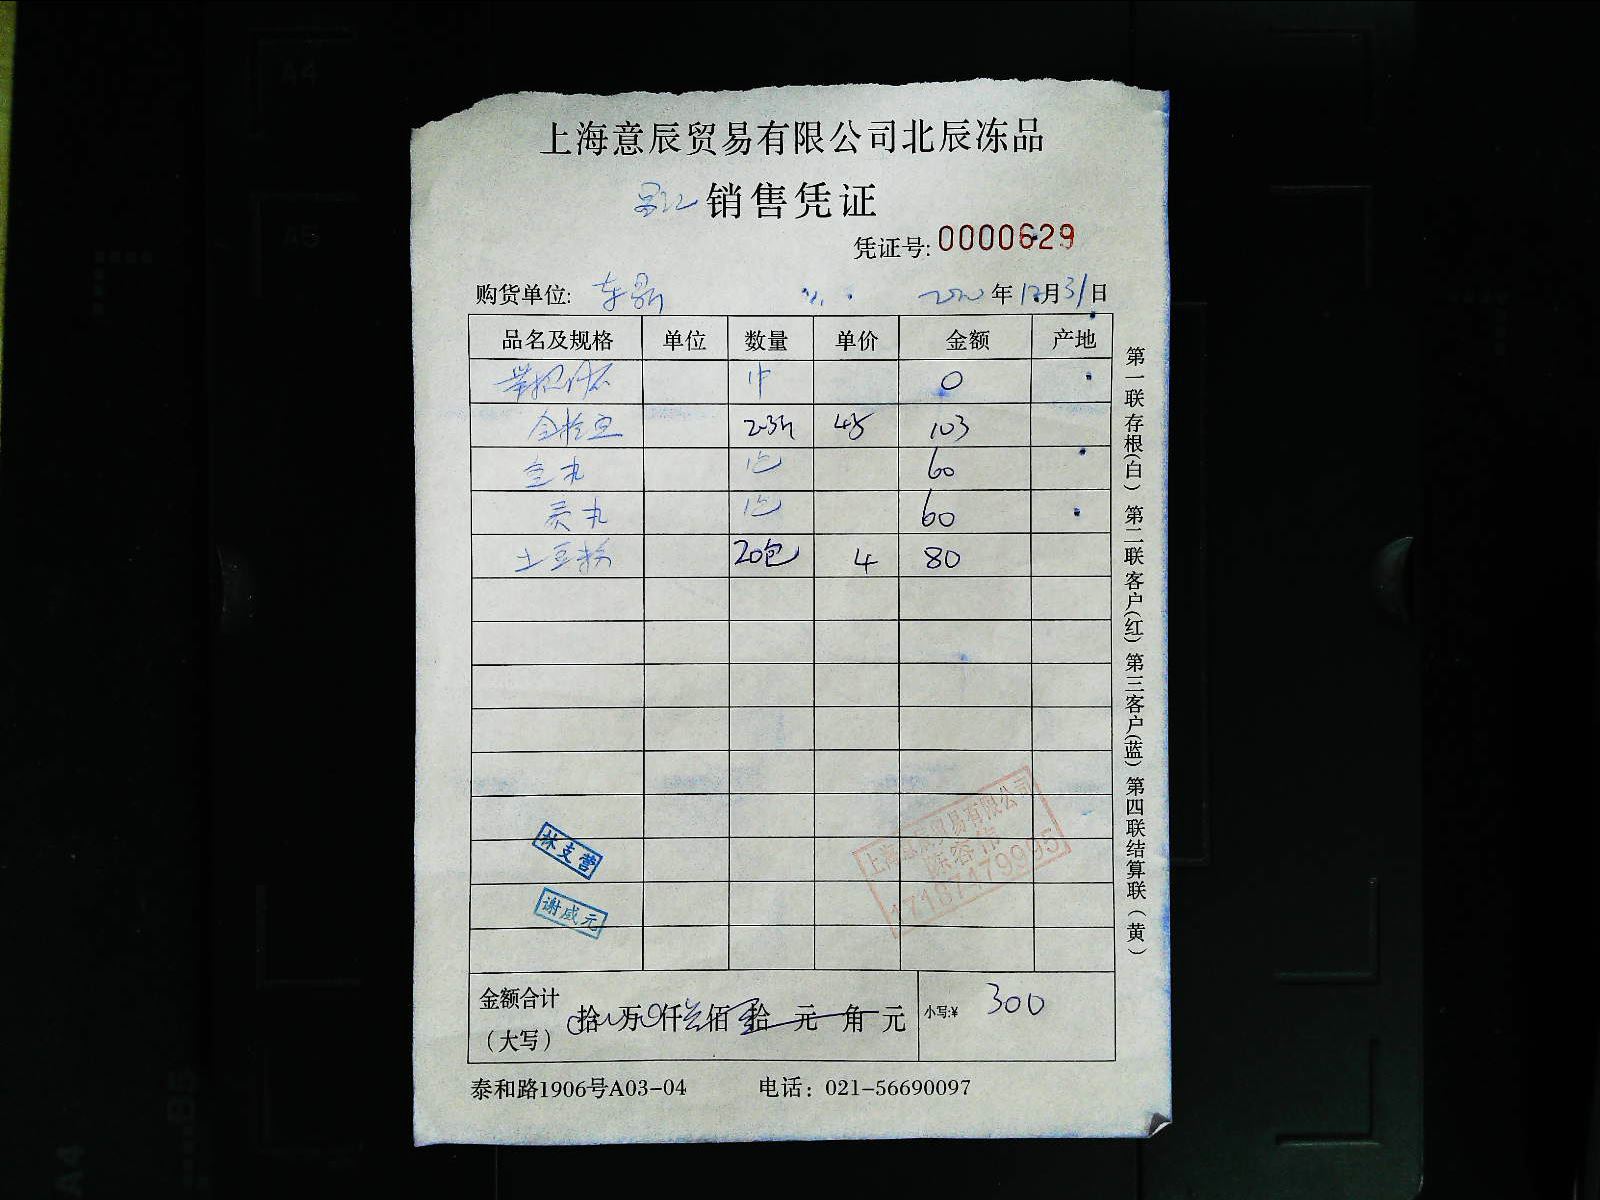 上海意辰贸易有限公司北辰冻品
销售凭证
凭证号: 0000629
购货单位: 2020年12月31日
品名及规格 单位 数量 单价 金额 产地
0
103
鱼丸 60
贡丸 60
土豆粉 20包 4 80
林支营
谢咸元
上海意辰贸易有限公司
17187179995
金额合计（大写） 拾 万 仟 佰 拾 元 角 元 小写:¥ 300
泰和路1906号A03-04 电话：021-56690097
第一联存根（白）第二联客户（红）第三客户（蓝）第四联结算联（黄）